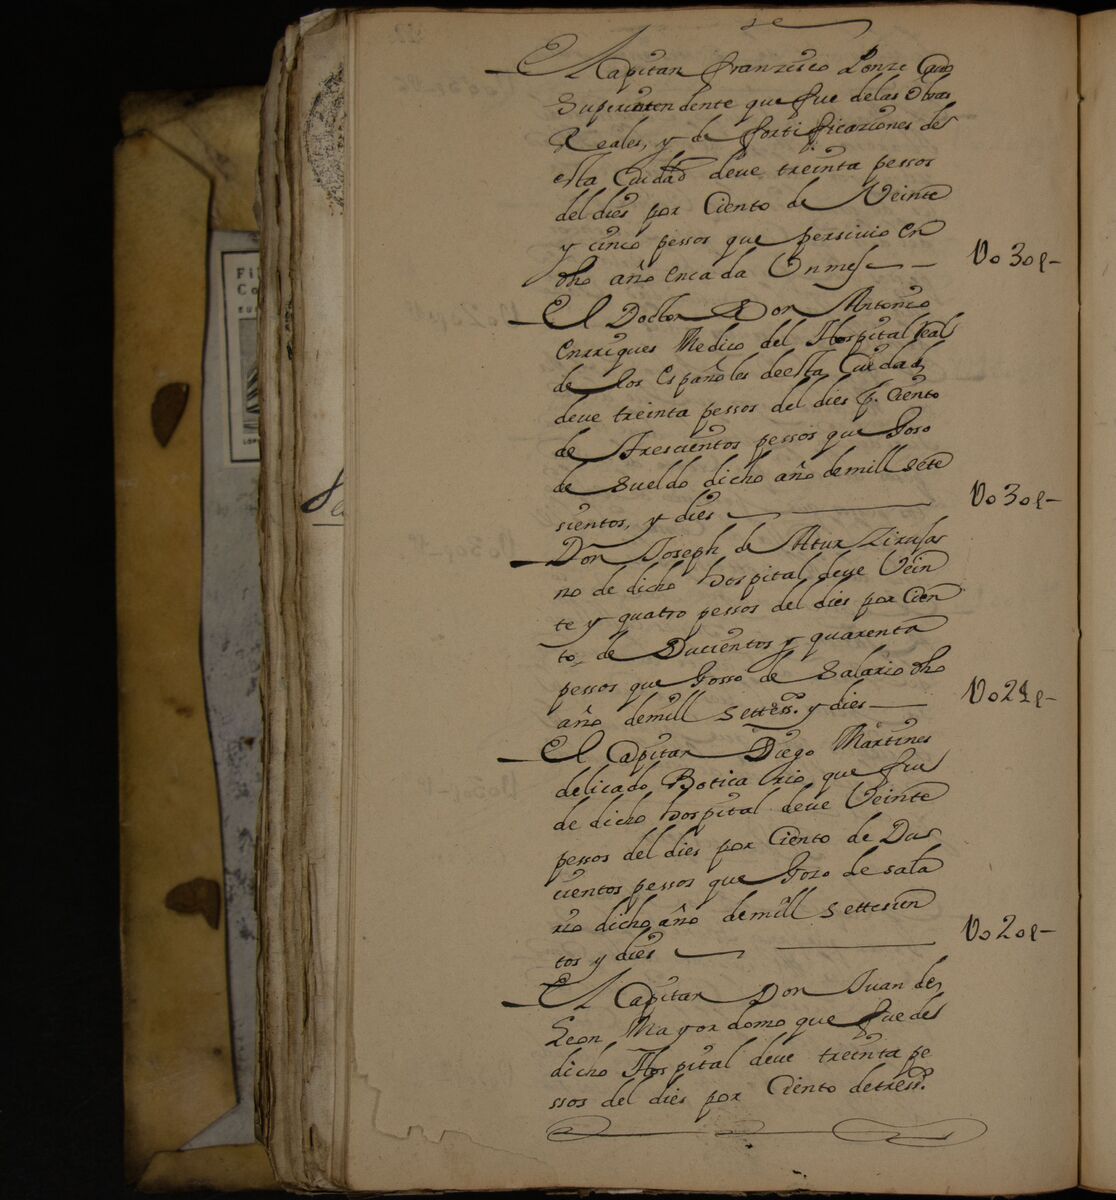 El Capitan Franzisco Ponze
Superintendente que fue delas Obras
Reales, y de fortificaziones des
ta Ciudad deve treinta pessos
del dies por Ciento de Veinte
y cinco pessos que persivio en
dho año encada Un mes
U030p
El Doctor Don Antonio
Enrriques Medico del Hospital Real
de los Españoles deesta Ciudad
deve treinta pessos del dies p. Ciento
de Trescientos pessos que Goso
de Sueldo dicho año de mill sete
sientos, y dies
U030p
Don Joseph de
no de dicho hospital deve Vein
te y quatro pessos del dies por Cien
to, de Ducientos y quarenta
pessos que Gosso de Salario dho
año demill settess. y dies
U024p
El Capitan Diego Martines
delicado Boticario que fue
de dicho hospital deve Veinte
pessos del dies por Ciento de Dus
cientos pessos que Gozo de sala
rio dicho año demill settesien
tos y dies
U020p
El Capitan Don Juan de
Leon Mayordomo que fue del
dicho Hospital deve treinta pe
ssos del dies por Ciento detress.